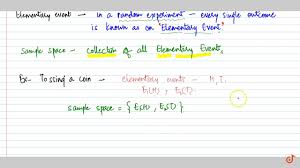 Elementary event - In a random experiment - every single outcome
is known as an "Elementary Event"
Sample space - collection of all Elementary Events.
Ex- Tossing a coin - elementary events - H, T.
E₁(H) , E₂(T)
sample space = { E₁(H) , E₂(T) }